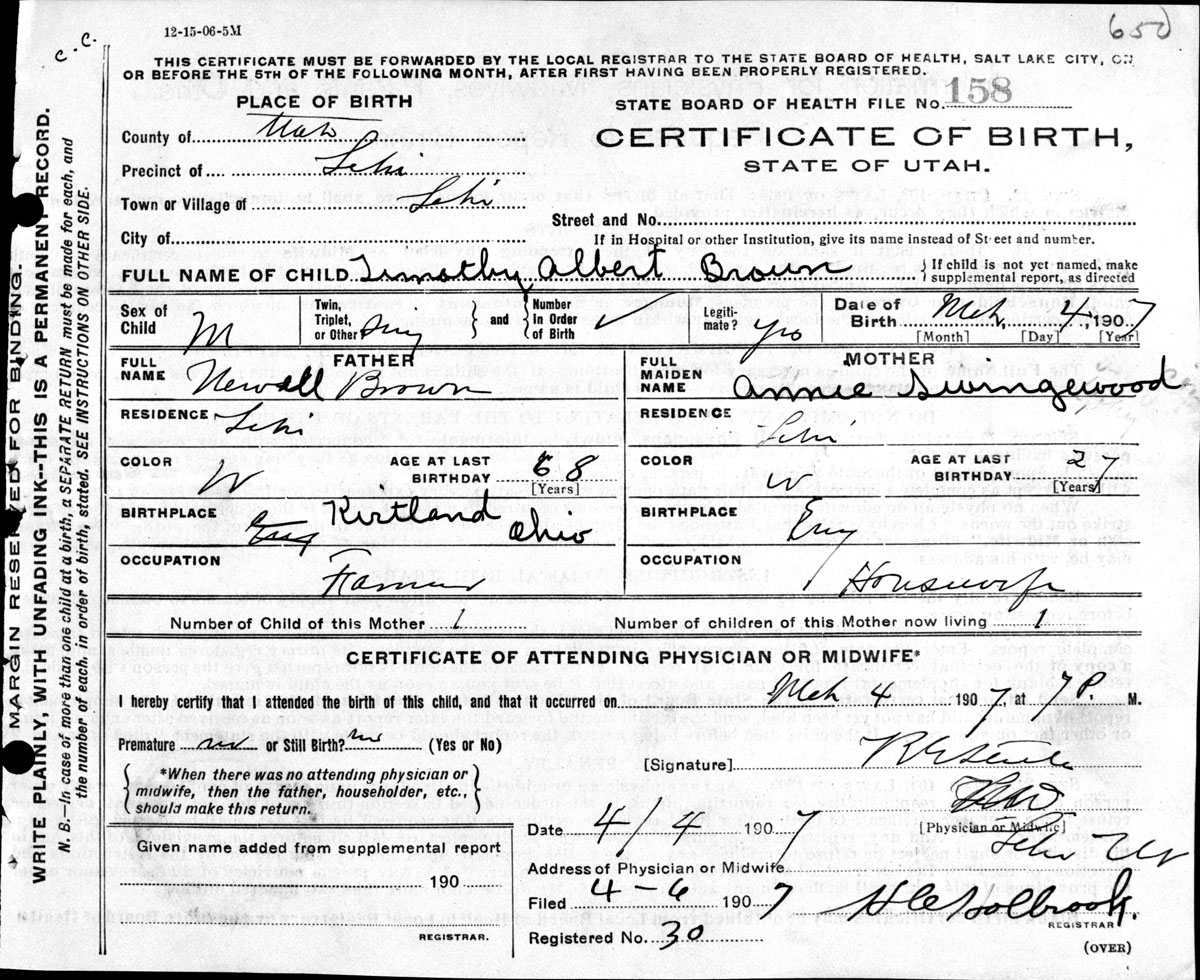 12-15-06-5M
650
C. C.
THIS CERTIFICATE MUST BE FORWARDED BY THE LOCAL REGISTRAR TO THE STATE BOARD OF HEALTH, SALT LAKE CITY, ON
OR BEFORE THE 5TH OF THE FOLLOWING MONTH, AFTER FIRST HAVING BEEN PROPERLY REGISTERED.
PLACE OF BIRTH
STATE BOARD OF HEALTH FILE No. 158
County of Utah
CERTIFICATE OF BIRTH,
STATE OF UTAH.
Precinct of Lehi
Town or Village of Lehi
Street and No.
City of
If in Hospital or other Institution, give its name instead of Street and number.
FULL NAME OF CHILD Timothy Albert Brown { If child is not yet named, make supplemental report, as directed
Sex of Child M Twin, Triplet, or Other Sing and { Number In Order of Birth ✓ Legiti-mate? yes Date of Birth Mch, 4, 1907
[Month] [Day] [Year]
FATHER
FULL NAME Newall Brown
RESIDENCE Lehi
COLOR W AGE AT LAST BIRTHDAY 68 [Years]
BIRTHPLACE Eng Kirtland Ohio
OCCUPATION Farmer
MOTHER
FULL MAIDEN NAME Annie Swingewood
RESIDENCE Lehi
COLOR W AGE AT LAST BIRTHDAY 27 [Years]
BIRTHPLACE Eng
OCCUPATION Housewife
Number of Child of this Mother 1 Number of children of this Mother now living 1
CERTIFICATE OF ATTENDING PHYSICIAN OR MIDWIFE*
I hereby certify that I attended the birth of this child, and that it occurred on Mch 4 1907, at 7P. M.
Premature no or Still Birth? no (Yes or No)
[Signature]
{ *When there was no attending physician or midwife, then the father, householder, etc., should make this return. }
[Physician or Midwife]
Date 4/4 1907
Given name added from supplemental report
190
REGISTRAR.
Address of Physician or Midwife Lehi Ut
Filed 4-6 1907 H C Holbrook.
REGISTRAR
Registered No. 30
(OVER)
MARGIN RESERVED FOR BINDING.
WRITE PLAINLY, WITH UNFADING INK--THIS IS A PERMANENT RECORD.
N. B.--In case of more than one child at a birth, a SEPARATE RETURN must be made for each, and
the number of each, in order of birth, stated. SEE INSTRUCTIONS ON OTHER SIDE.